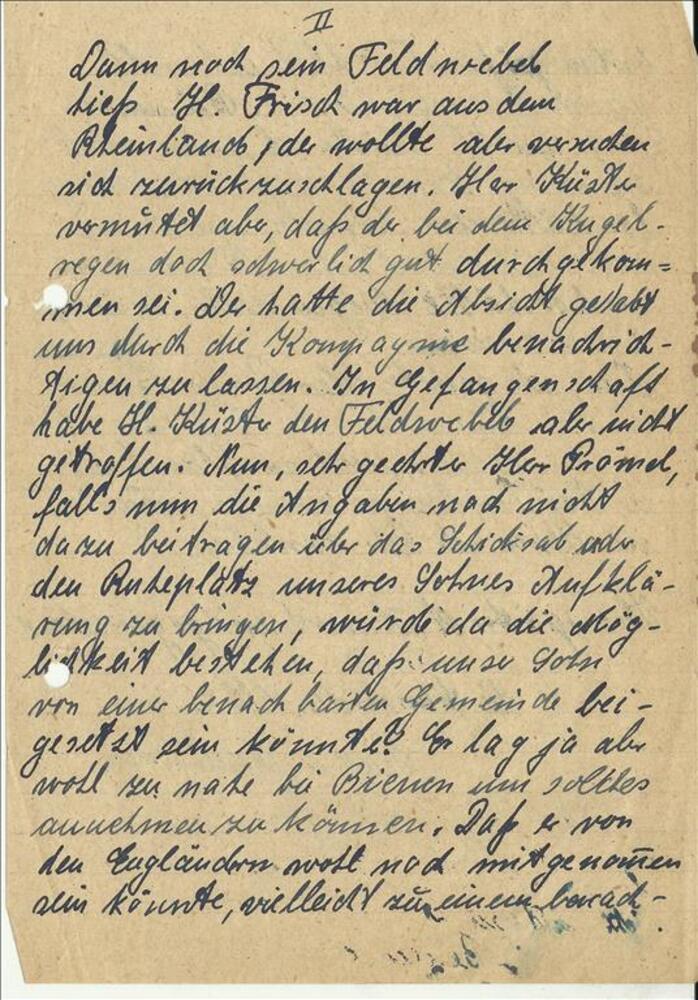 II
Dann noch sein Feldwebel
hieß H. Frisch war aus dem
Rheinland, der wollte aber versuchen
sich zurückzuschlagen. Herr Küster
vermutet aber, daß der bei dem Kugel-
regen doch schwerlich gut durchgekom=
men sei. Der hatte die Absicht gehabt
uns durch die Kompagnie benachrich-
tigen zu lassen. In Gefangenschaft
habe H. Küster den Feldwebel aber nicht
getroffen. Nun, sehr geehrter Herr Prömel,
falls nun die Angaben noch nicht
dazu beitragen über das Schicksal oder
den Ruheplatz unseres Sohnes Aufklä-
rung zu bringen, würde da die Mög-
lichkeit bestehen, daß unser Sohn
von einer benachbarten Gemeinde bei-
gesetzt sein könnte? Er lag ja aber
wohl zu nahe bei Bienen um solches
annehmen zu können. Daß er von
den Engländern wohl noch mitgenom̄en
sein könnte, vielleicht zu einem benach-